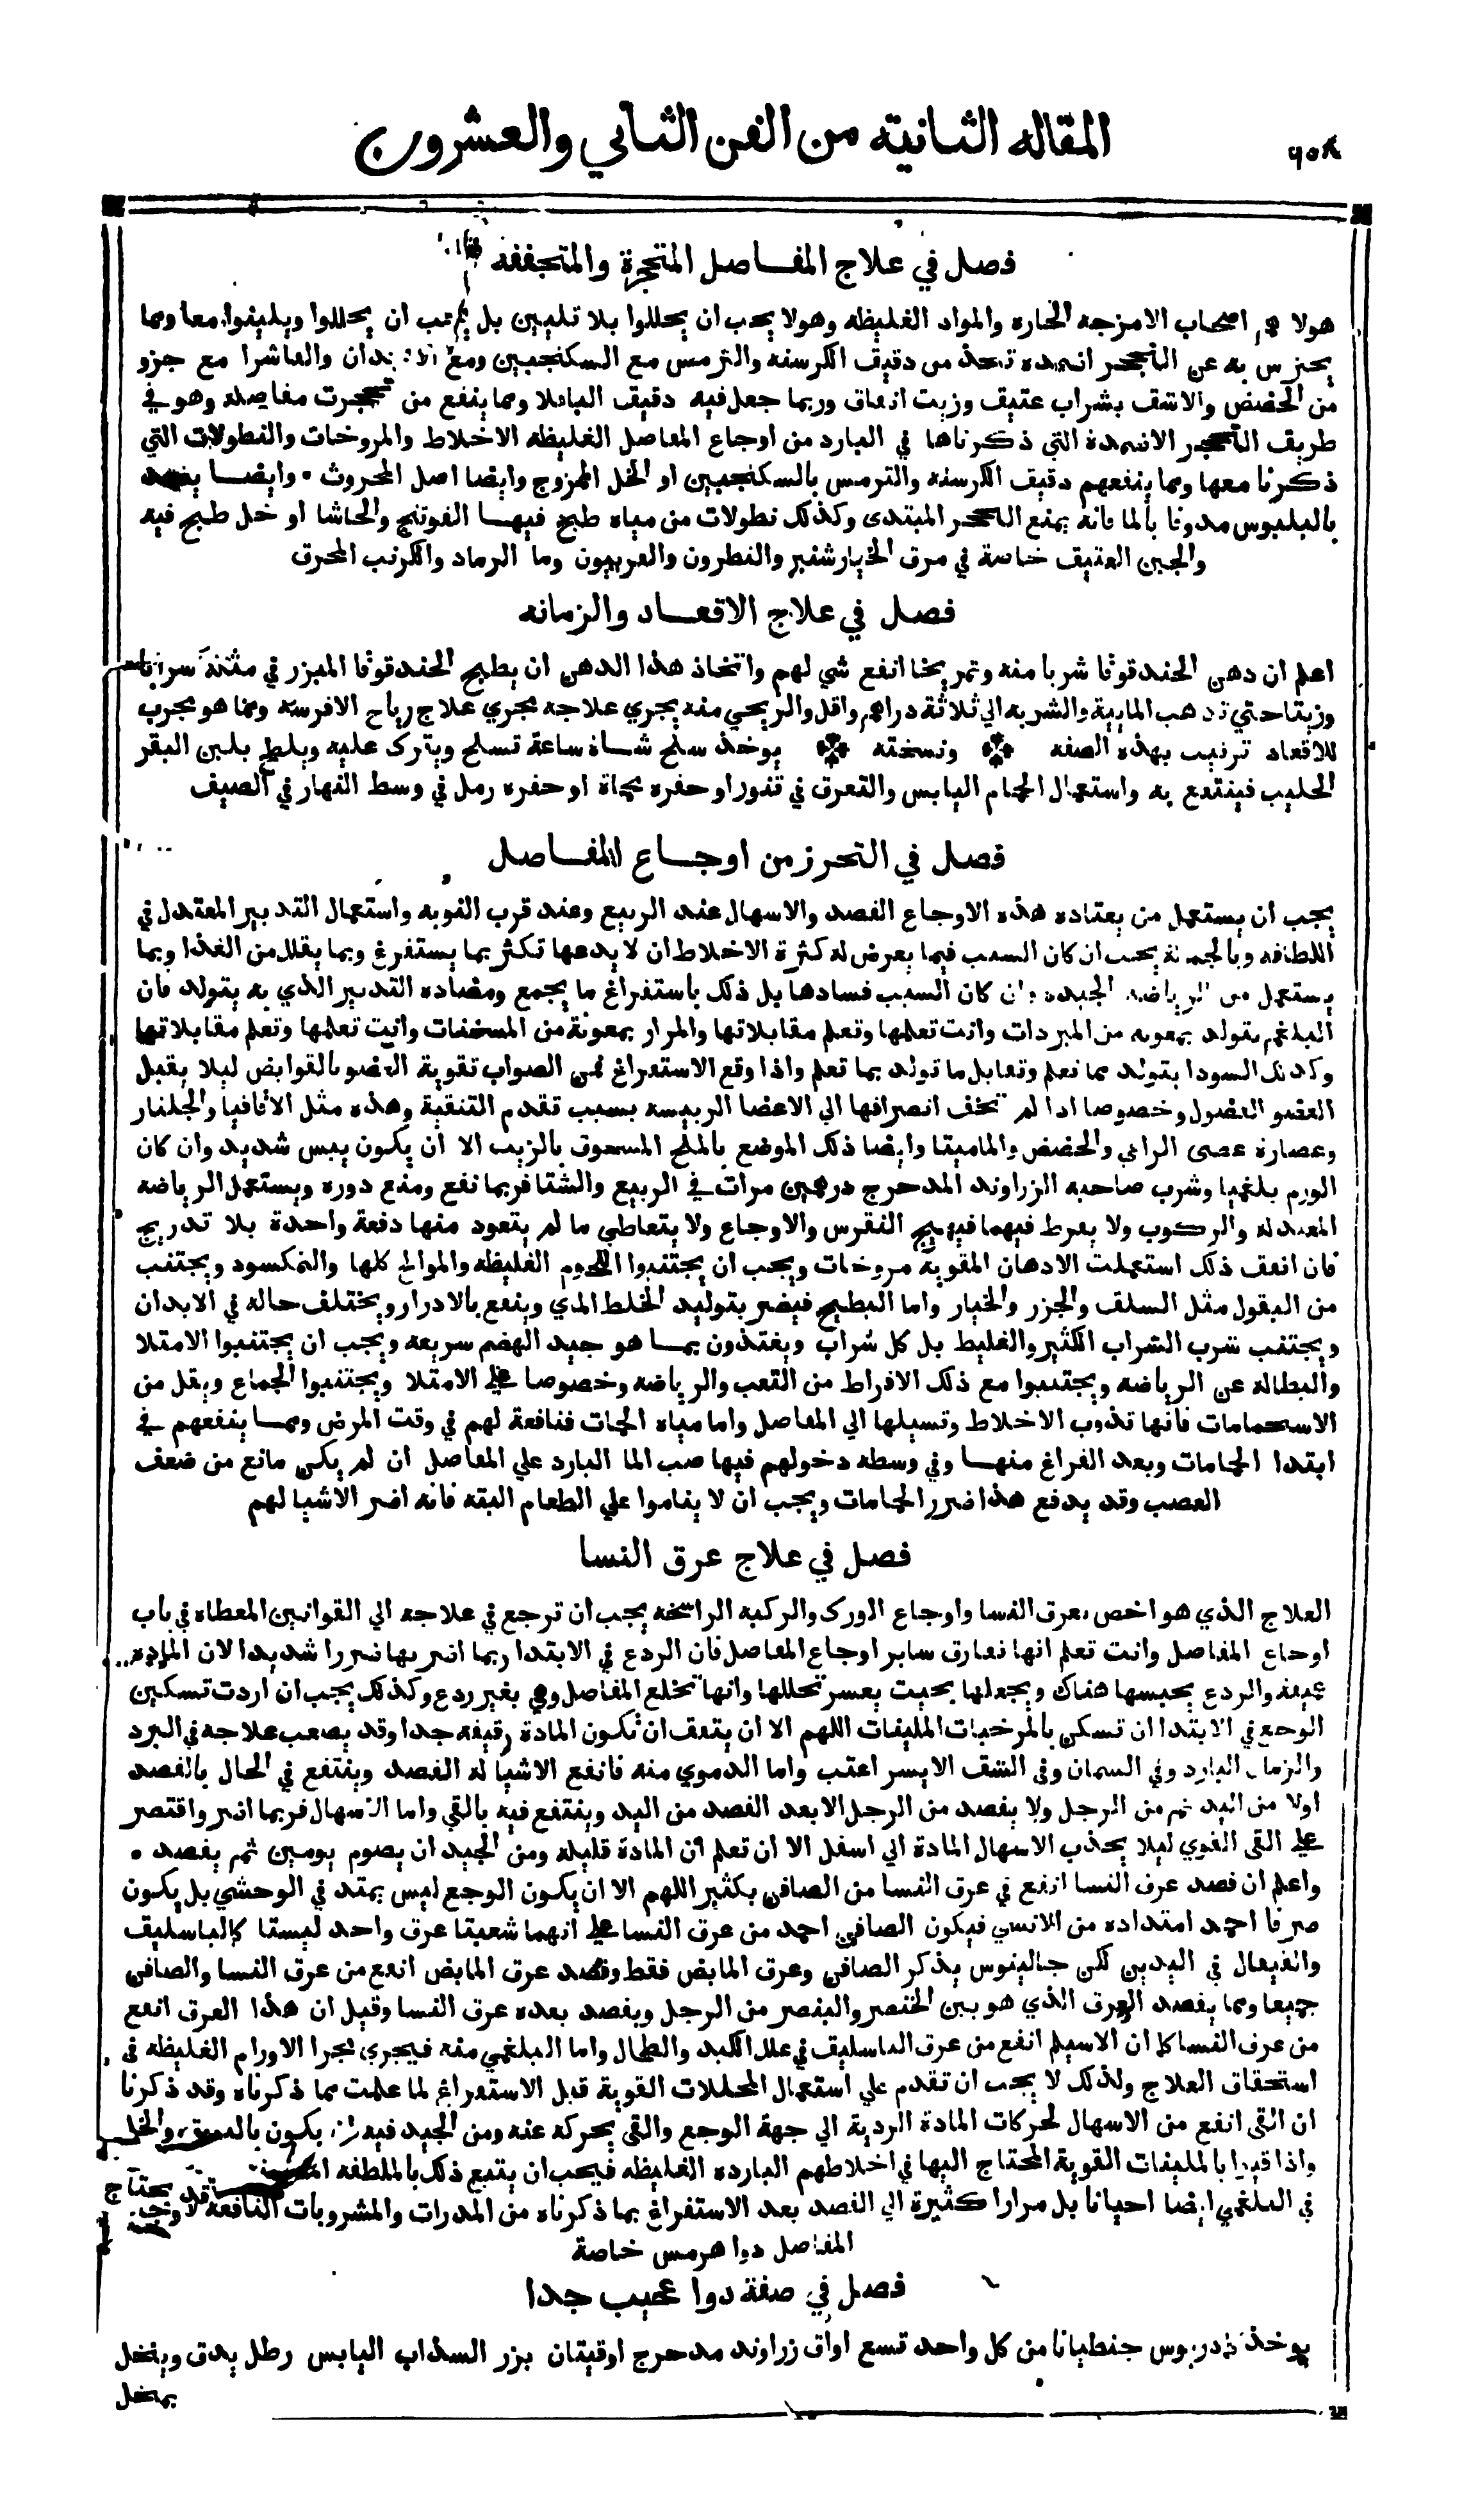 ٦٥٨
المقاله الثانية من الفن الثاني والعشرون
فصل في علاج المفاصل المتحجرة والمتجففه
هولا هم اصحاب الامزجه الحاره والمواد الغليظه وهولا يجب ان يحللوا بلا تليين بل يجب ان يحللوا ويلينوا معا ومما
يحترس به عن التحجر اضمده تتخذ من دقيق الكرسنه والترمس مع السكنجبين ومع والفاشرا مع جزو
من الحضض والاشق بشراب عتيق وزيت انفاق وربما جعل فيه دقيق الباقلا ومما ينفع من تحجرت مفاصله وهو في
طريق التحجر الاضمدة التي ذكرناها في البارد من اوجاع المفاصل الغليظه الاخلاط والمروخات والنطولات التي
ذكرنا معها ومما ينفعهم دقيق الكرسنه والترمس بالسكنجبين او الخل الممزوج وايضا اصل المحروث • وايضا يضمد
بالبلبوس مدوفا بالما فانه يمنع التحجر المبتدى وكذلك نطولات من مياه طبخ فيها الفوتنج والحاشا او خل طبخ فيه
والجبن العتيق خاصة في مرق الخيارشنبر والنطرون والفربيون وما الرماد والكرنب المحرق
فصل في علاج الاقعاد والزمانه
اعلم ان دهن الحندقوقا شربا منه وتمريخا انفع شي لهم واتخاذ هذا الدهن ان يطبخ الحندقوقا المبزر في مثله شرابا
وزيتا حتي تذهب المايية والشربه الي ثلاثة دراهم واقل والريحي منه يجري علاجه مجري علاج رياح الافرسه ومما هو مجرب
للاقعاد ترتيب بهذه الصفه ونسخته يوخذ سلخ شاة ساعة تسلخ ويترك عليه ويلطخ بلبن البقر
الحليب فينتفع به واستعمال الحمام اليابس والتعرق في تنور او حفره حماة او حفره رمل في وسط النهار في الصيف
فصل في التحرز من اوجاع المفاصل
يجب ان يستعمل من يعتاده هذه الاوجاع الفصد والاسهال عند الربيع وعند قرب النوبه واستعمال التدبير المعتدل في
اللطافه وبالجملة يجب ان كان السبب فيما يعرض له كثرة الاخلاط ان لا يدعها تكثر بما يستفرغ وبما يقلل من الغذا وبما
يستعمل من الرياضه الجيده وان كان السبب فسادها بل ذلك باستفراغ ما يجمع ومضاده التدبير الذي به يتولد فان
البلغم يتولد بمعونه من المبردات وانت تعلمها وتعلم مقابلاتها والمرار بمعونة من المسخنات وانت تعلمها وتعلم مقابلاتها
وكذلك السودا يتولد مما تعلم وتقابل ما تولد بما تعلم واذا وقع الاستفراغ فمن الصواب تقوية العضو بالقوابض ليلا يقبل
العضو الفضول وخصوصا اذا لم تخف انصرافها الي الاعضا الرييسه بسبب تقدم التنقية وهذه مثل الاقاقيا والجلنار
وعصارة عصى الراعي والحضض والماميثا وايضا ذلك الموضع بالملح المسحوق بالزيت الا ان يكون يبس شديد وان كان
الورم بلغميا وشرب صاحبه الزراوند المدحرج درهمين مرات في الربيع والشتا فربما نفع ومنع دوره ويستعمل الرياضه
المعتدله والركوب ولا يفرط فيهما فيهيج النقرس والاوجاع ولا يتعاطي ما لم يتعود منها دفعة واحدة بلا تدريج
فان اتفق ذلك استعملت الادهان المقويه مروخات ويجب ان يجتنبوا اللحوم الغليظه والموالح كلها والنمكسود ويجتنب
من البقول مثل السلق والجزر والخيار واما البطيخ فيضر بتوليد الخلط المدي وينفع بالادرار ويختلف حاله في الابدان
ويجتنب شرب الشراب الكثير والغليط بل كل شراب ويغتذون بما هو جيد الهضم سريعه ويجب ان يجتنبوا الامتلا
والبطاله عن الرياضه ويجتنبوا مع ذلك الافراط من التعب والرياضه وخصوصا علي الامتلا ويجتنبوا الجماع ويقل من
الاستحمامات فانها تذوب الاخلاط وتسيلها الي المفاصل واما مياه الحمات فنافعة لهم في وقت المرض ومما ينفعهم في
ابتدا الحمامات وبعد الفراغ منها وفي وسطه دخولهم فيها صب الما البارد علي المفاصل ان لم يكن مانع من ضعف
العصب وقد يدفع هذا ضرر الحمامات ويجب ان لا يناموا علي الطعام البته فانه اضر الاشيا لهم
فصل في علاج عرق النسا
العلاج الذي هو اخص بعرق النسا واوجاع الورك والركبه الراسخه يجب ان ترجع في علاجه الي القوانين المعطاه في باب
اوجاع المفاصل وانت تعلم انها تفارق ساير اوجاع المفاصل فان الردع في الابتدا ربما اضر بها ضررا شديدا لان المادة
عميقه والردع يحبسها هناك ويجعلها بحيث يعسر تحللها وانها تخلع المفاصل وهي بغير ردع وكذلك يجب ان اردت تسكين
الوجع في الابتدا ان تسكن بالمرخيات الملينات اللهم الا ان يتفق ان تكون المادة رقيقه جدا وقد يصعب علاجه في البرد
والزمان البارد وفي السمان وفي الشق الايسر اعتب واما الدموي منه فانفع الاشيا له الفصد وينتفع في الحال بالفصد
اولا من اليد ثم من الرجل ولا يفصد من الرجل الا بعد الفصد من اليد وينتفع فيه بالقي واما الاسهال فربما اضر واقتصر
علي القي القوي ليلا يجذب الاسهال المادة الي اسفل الا ان تعلم ان المادة قليله ومن الجيد ان يصوم يومين ثم يفصد •
واعلم ان فصد عرق النسا انفع في عرق النسا من الصافن بكثير اللهم الا ان يكون الوجع ليس يمتد في الوحشي بل يكون
صرفا احمد امتداده من الانسي فيكون الصافن احمد من عرق النسا علي انهما شعبتا عرق واحد ليستا كالباسليق
والقيفال في اليدين لكن جالينوس يذكر الصافن وعرق المابض فقط وفصد عرق المابض انفع من عرق النسا والصافن
جميعا ومما يفصد العرق الذي هو بين الخنصر والبنصر من الرجل ويفصد بعده عرق النسا وقيل ان هذا العرق انفع
من عرق النسا كما ان الاسيلم انفع من عرق الباسليق في علل الكبد والطحال واما البلغمي منه فيجري مجرا الاورام الغليظه في
استحقاق العلاج ولذلك لا يجب ان تقدم علي استعمال المحللات القوية قبل الاستفراغ لما علمت مما ذكرناه وقد ذكرنا
ان القي انفع من الاسهال لحركات المادة الردية الي جهة الوجع والقي يحركه عنه ومن الجيد فيه ان يكون والخل
واذا قيوا بالملينات القوية المحتاج اليها في اخلاطهم البارده الغليظه فيجب ان يتبع ذلك بالملطفه
وقد يحتاج
في البلغمي ايضا احيانا بل مرارا كثيرة الي الفصد بعد الاستفراغ بما ذكرناه من المدرات والمشروبات النافعة لاوجاع
المفاصل دوا هرمس خاصة
فصل في صفة دوا عجيب جدا
يوخذ جنطيانا من كل واحد تسع اواق زراوند مدحرج اوقيتان بزر السذاب اليابس رطل يدق وينخل
بمنخل